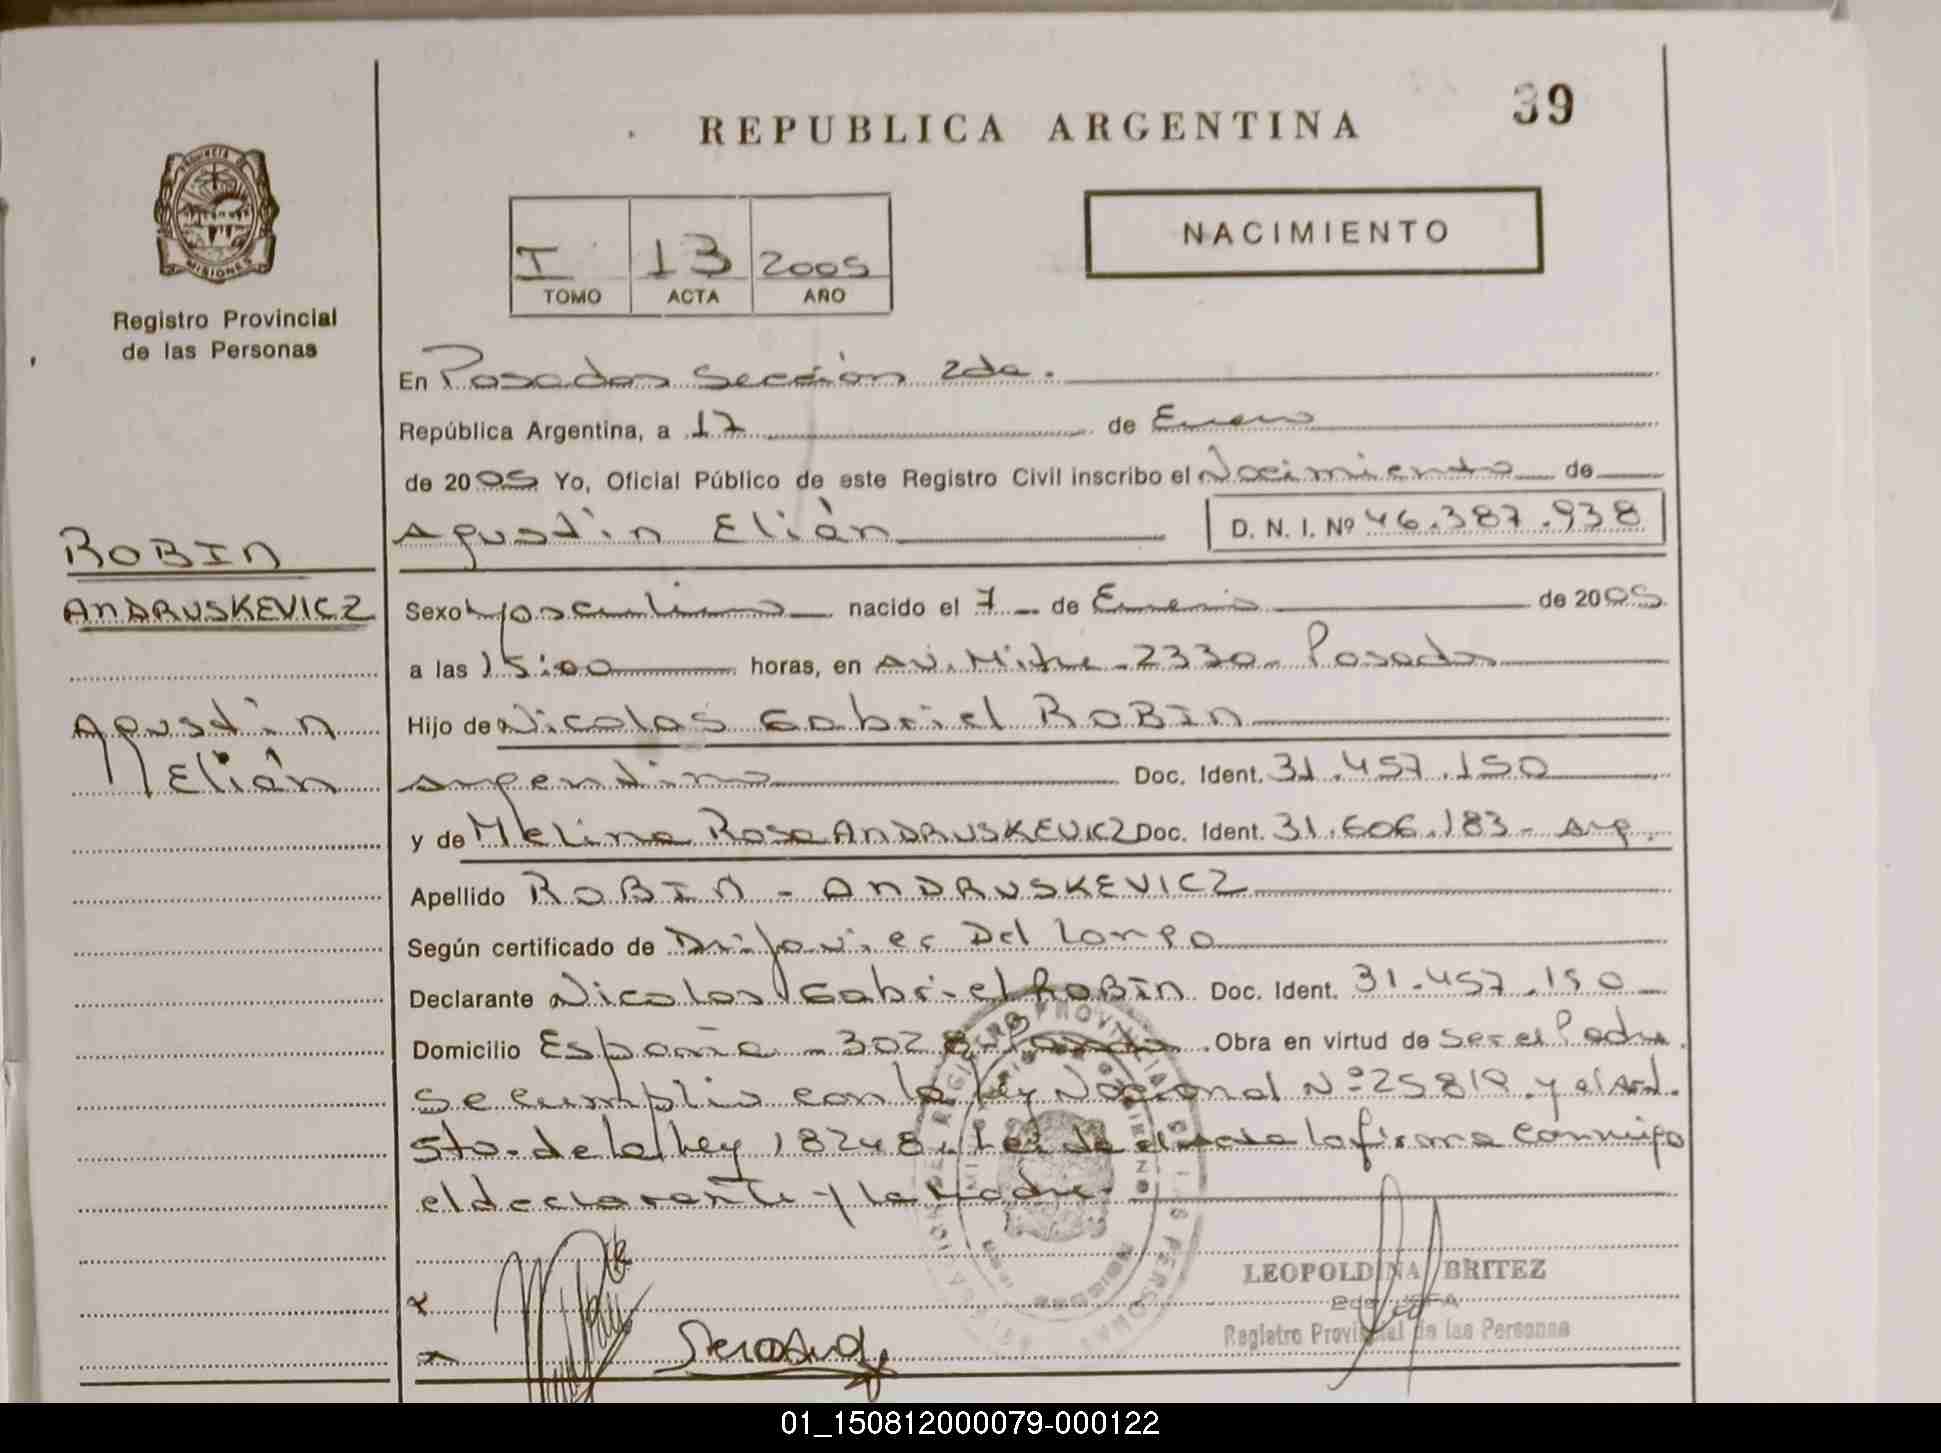 REPUBLICA ARGENTINA
39
PROVINCIA DE
MISIONES
Registro Provincial
de las Personas
I 13 2005
TOMO ACTA AÑO
NACIMIENTO
En Posadas Sección 2da.
República Argentina, a 17 de Enero
de 2005 Yo, Oficial Público de este Registro Civil inscribo el Nacimiento de
Agustín Elián D. N. I. Nº 46.387.938
ROBIN
ANDRUSKEVICZ
Agustín
Elián
Sexo Masculino nacido el 7 de Enero de 2005
a las 15:00 horas, en Av. Mitre - 2330 - Posadas
Hijo de Nicolas Gabriel ROBIN
Argentino Doc. Ident. 31.457.150
y de Melina Rosa ANDRUSKEVICZ Doc. Ident. 31.606.183 - Arg.
Apellido ROBIN - ANDRUSKEVICZ
Según certificado de Dr. Javier Del Longo
Declarante Nicolas Gabriel ROBIN Doc. Ident. 31.457.150
Domicilio España - 3028 - Posadas. Obra en virtud de ser el Padre.
Se cumplio con la Ley Nacional Nº 25819 y el Art.
5to. de la Ley 18248. Leida el acta la firma conmigo
el declarante y la Madre.
LEOPOLDINA BRITEZ
2da JEFA
Registro Provincial de las Personas
01_150812000079-000122